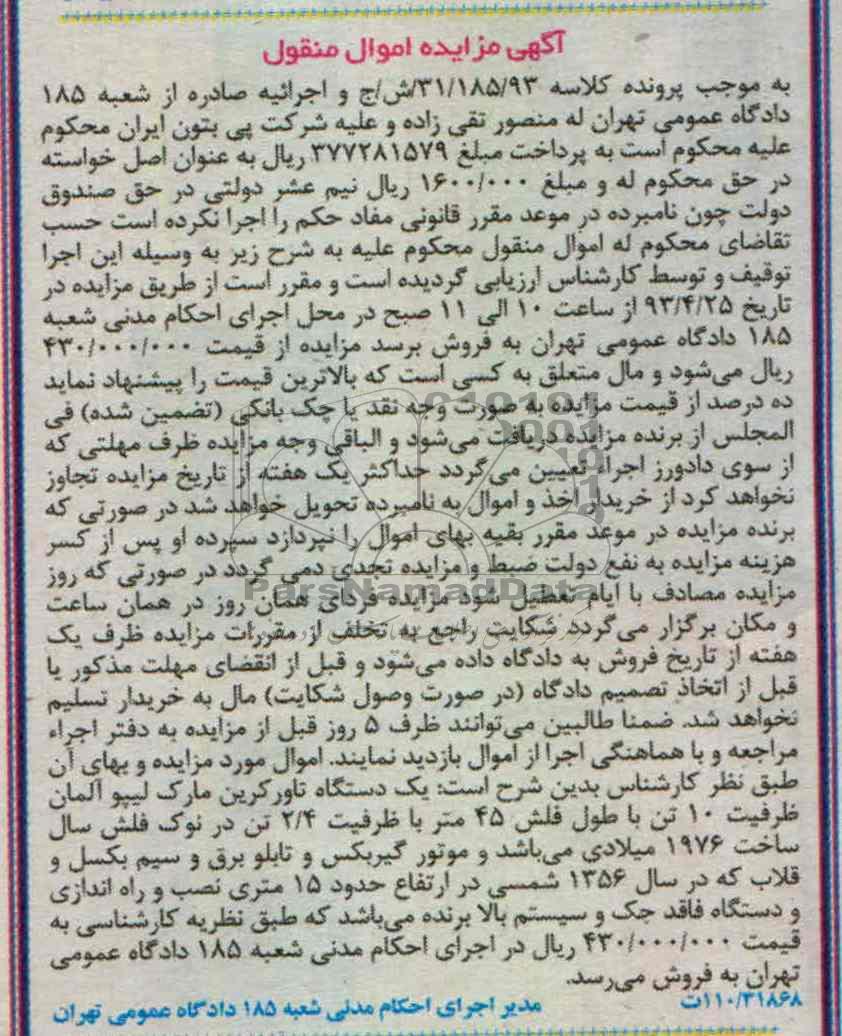 آگهی مزایده اموال منقول
به موجب پرونده کلاسه ۳۱/۱۸۵/۹۳/ش/ج و اجرائیه صادره از شعبه ۱۸۵
دادگاه عمومی تهران له منصور تقی زاده و علیه شرکت پی بتون ایران محکوم
علیه محکوم است به پرداخت مبلغ ۳۷۷۲۸۱۵۷۹ ریال به عنوان اصل خواسته
در حق محکوم له و مبلغ ۱۶۰۰/۰۰۰ ریال نیم عشر دولتی در حق صندوق
دولت چون نامبرده در موعد مقرر قانونی مفاد حکم را اجرا نکرده است حسب
تقاضای محکوم له اموال منقول محکوم علیه به شرح زیر به وسیله این اجرا
توقیف و توسط کارشناس ارزیابی گردیده است و مقرر است از طریق مزایده در
تاریخ ۹۳/۴/۲۵ از ساعت ۱۰ الی ۱۱ صبح در محل اجرای احکام مدنی شعبه
۱۸۵ دادگاه عمومی تهران به فروش برسد مزایده از قیمت ۴۳۰/۰۰۰/۰۰۰
ریال می‌شود و مال متعلق به کسی است که بالاترین قیمت را پیشنهاد نماید
ده درصد از قیمت مزایده به صورت وجه نقد یا چک بانکی (تضمین شده) فی
المجلس از برنده مزایده دریافت می‌شود و الباقی وجه مزایده ظرف مهلتی که
از سوی دادورز اجراء تعیین می‌گردد حداکثر یک هفته از تاریخ مزایده تجاوز
نخواهد کرد از خریدار اخذ و اموال به نامبرده تحویل خواهد شد در صورتی که
برنده مزایده در موعد مقرر بقیه بهای اموال را نپردازد سپرده او پس از کسر
هزینه مزایده به نفع دولت ضبط و مزایده تجدی دمی گردد در صورتی که روز
مزایده مصادف با ایام تعطیل شود مزایده فردای همان روز در همان ساعت
و مکان برگزار می‌گردد شکایت راجع به تخلف از مقررات مزایده ظرف یک
هفته از تاریخ فروش به دادگاه داده می‌شود و قبل از انقضای مهلت مذکور یا
قبل از اتخاذ تصمیم دادگاه (در صورت وصول شکایت) مال به خریدار تسلیم
نخواهد شد. ضمنا طالبین می‌توانند ظرف ۵ روز قبل از مزایده به دفتر اجراء
مراجعه و با هماهنگی اجرا از اموال بازدید نمایند. اموال مورد مزایده و بهای آن
طبق نظر کارشناس بدین شرح است: یک دستگاه تاورکرین مارک لیپو آلمان
ظرفیت ۱۰ تن با طول فلش ۴۵ متر با ظرفیت ۲/۴ تن در نوک فلش سال
ساخت ۱۹۷۶ میلادی می‌باشد و موتور گیربکس و تابلو برق و سیم بکسل و
قلاب که در سال ۱۳۵۶ شمسی در ارتفاع حدود ۱۵ متری نصب و راه اندازی
و دستگاه فاقد جک و سیستم بالا برنده می‌باشد که طبق نظریه کارشناسی به
قیمت ۴۳۰/۰۰۰/۰۰۰ ریال در اجرای احکام مدنی شعبه ۱۸۵ دادگاه عمومی
تهران به فروش می‌رسد.
۱۱۰/۳۱۸۶۸ت مدیر اجرای احکام مدنی شعبه ۱۸۵ دادگاه عمومی تهران
ParsNamadData